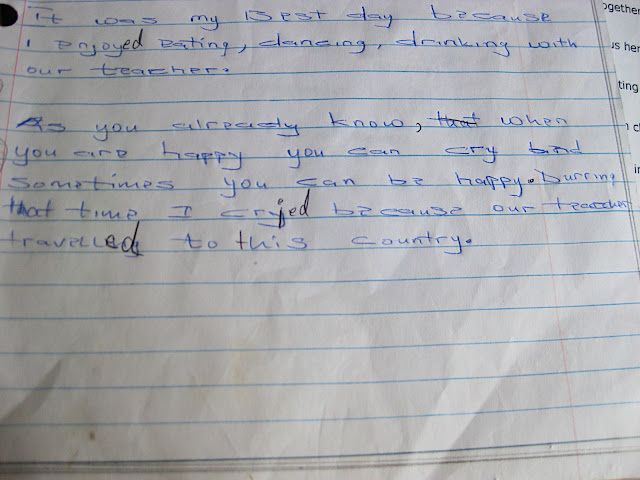 It was my Best day because
I enjoyed eating, dancing, drinking with
our teacher.
As you already know, that when
you are happy you can cry and
sometimes you can be happy. Durring
that time I cryied because our teacher
travelled to this country.
ogether
ting